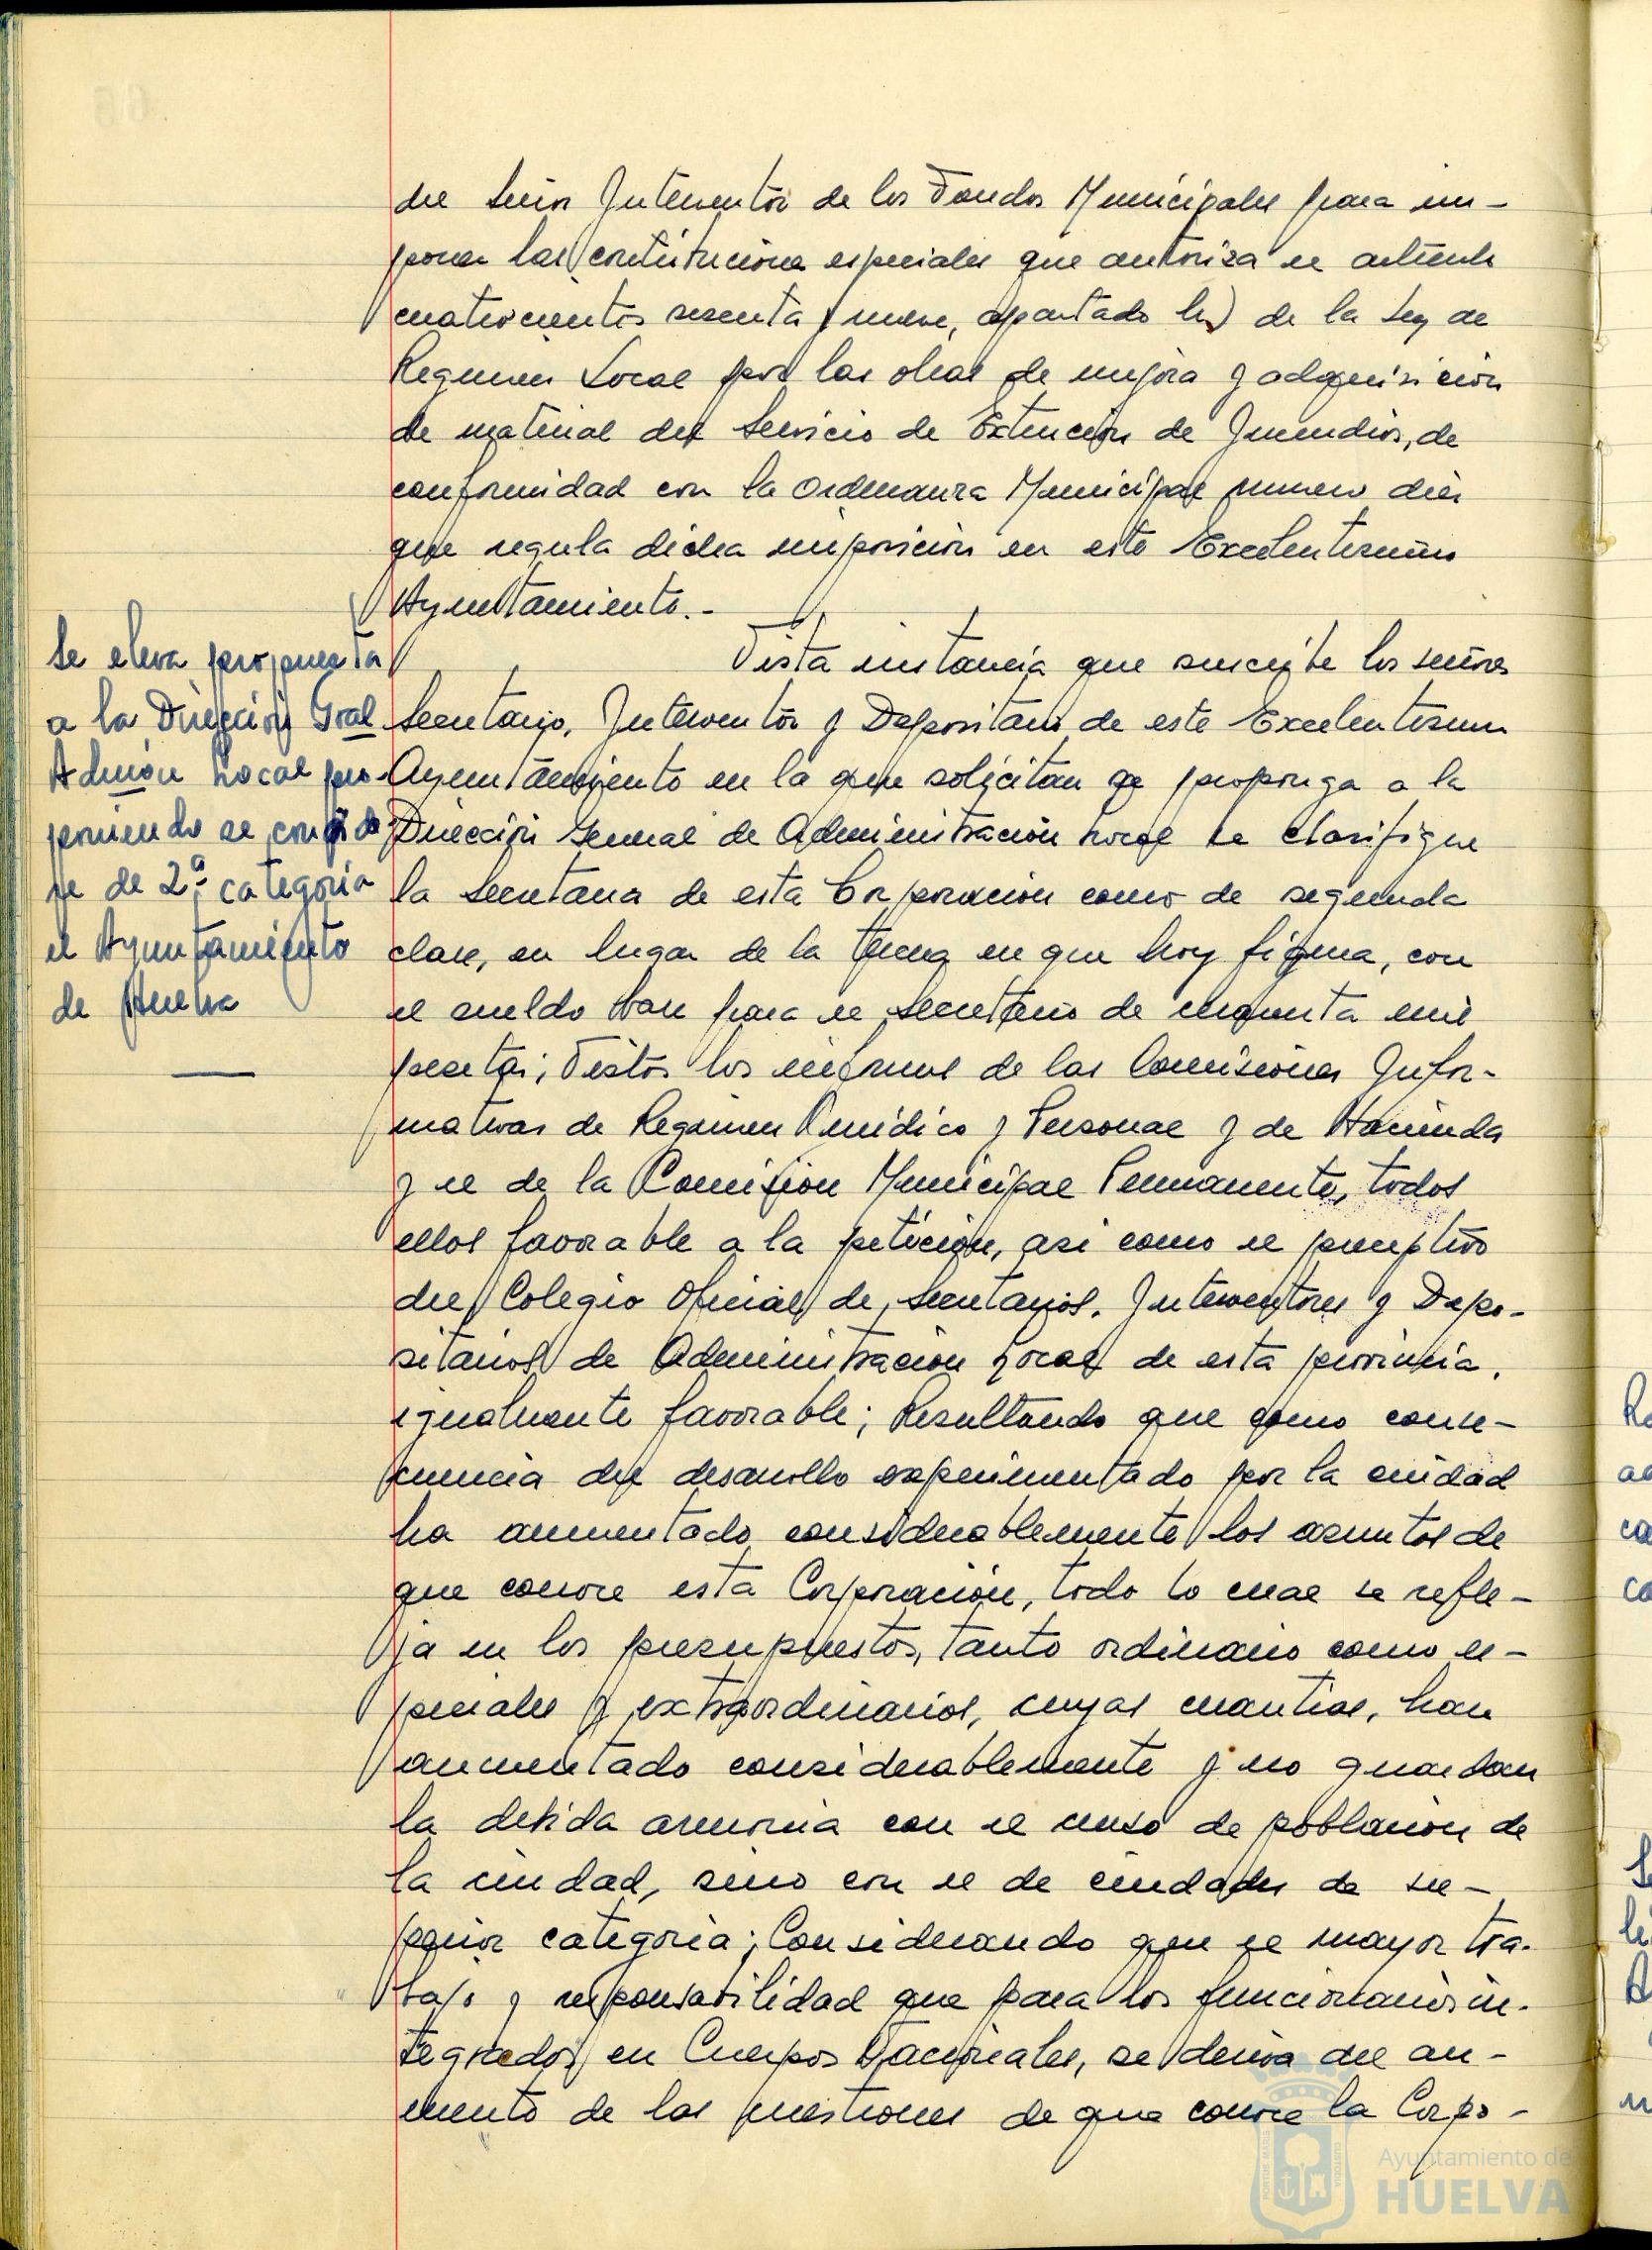 del Señor Interventor de los Fondos Municipales para im-
poner las contribuciones especiales que autoriza el artículo
cuatrocientos sesenta y nueve, apartado b) de la Ley de
Regimen Local por las obras de mejora y adquisición
de material del Servicio de Extinción de Incendios, de
conformidad con la Ordenanza Municipal numero diez
que regula dicha imposición en este Excelentisimo
Ayuntamiento.-
Se eleva propuesta
a la Dirección Gral
Admón Local pro-
poniendo se
de 2ª categoria
el Ayuntamiento
de Huelva
Vista instancia que suscribe los señores
Secretario, Interventor y Depositario de este Excelentisimo
Ayuntamiento en la que solicitan se proponga a la
Dirección General de Administración Local se clasifique
la Secretaria de esta Corporación como de segunda
clase, en lugar de la tercera en que hoy figura, con
el sueldo base para el Secretario de cincuenta mil
pesetas; Vistos los informes de las Comisiones Infor-
mativas de Regimen Juridico y Personal y de Hacienda
y el de la Comisión Municipal Permanente, todos
ellos favorable a la petición, asi como el preceptivo
del Colegio Oficial de Secretarios, Interventores y Depo-
sitarios de Administración Local de esta provincia,
igualmente favorable; Resultando que como conse-
cuencia del desarrollo experimentado por la ciudad
ha aumentado considerablemente los asuntos de
que conoce esta Corporación, todo lo cual se refle-
ja en los presupuestos, tanto ordinario como es-
peciales y extraordinarios, cuyas cuantias, han
aumentado considerablemente y no guardan
la debida armonia con el censo de población de
la ciudad, sino con el de ciudades de su-
perior categoria; Considerando que el mayor tra-
bajo y responsabilidad que para los funcionarios in-
tegrados en Cuerpos Nacionales, se deriva del au-
mento de las cuestiones de que conoce la Corpo-
Ayuntamiento de
HUELVA